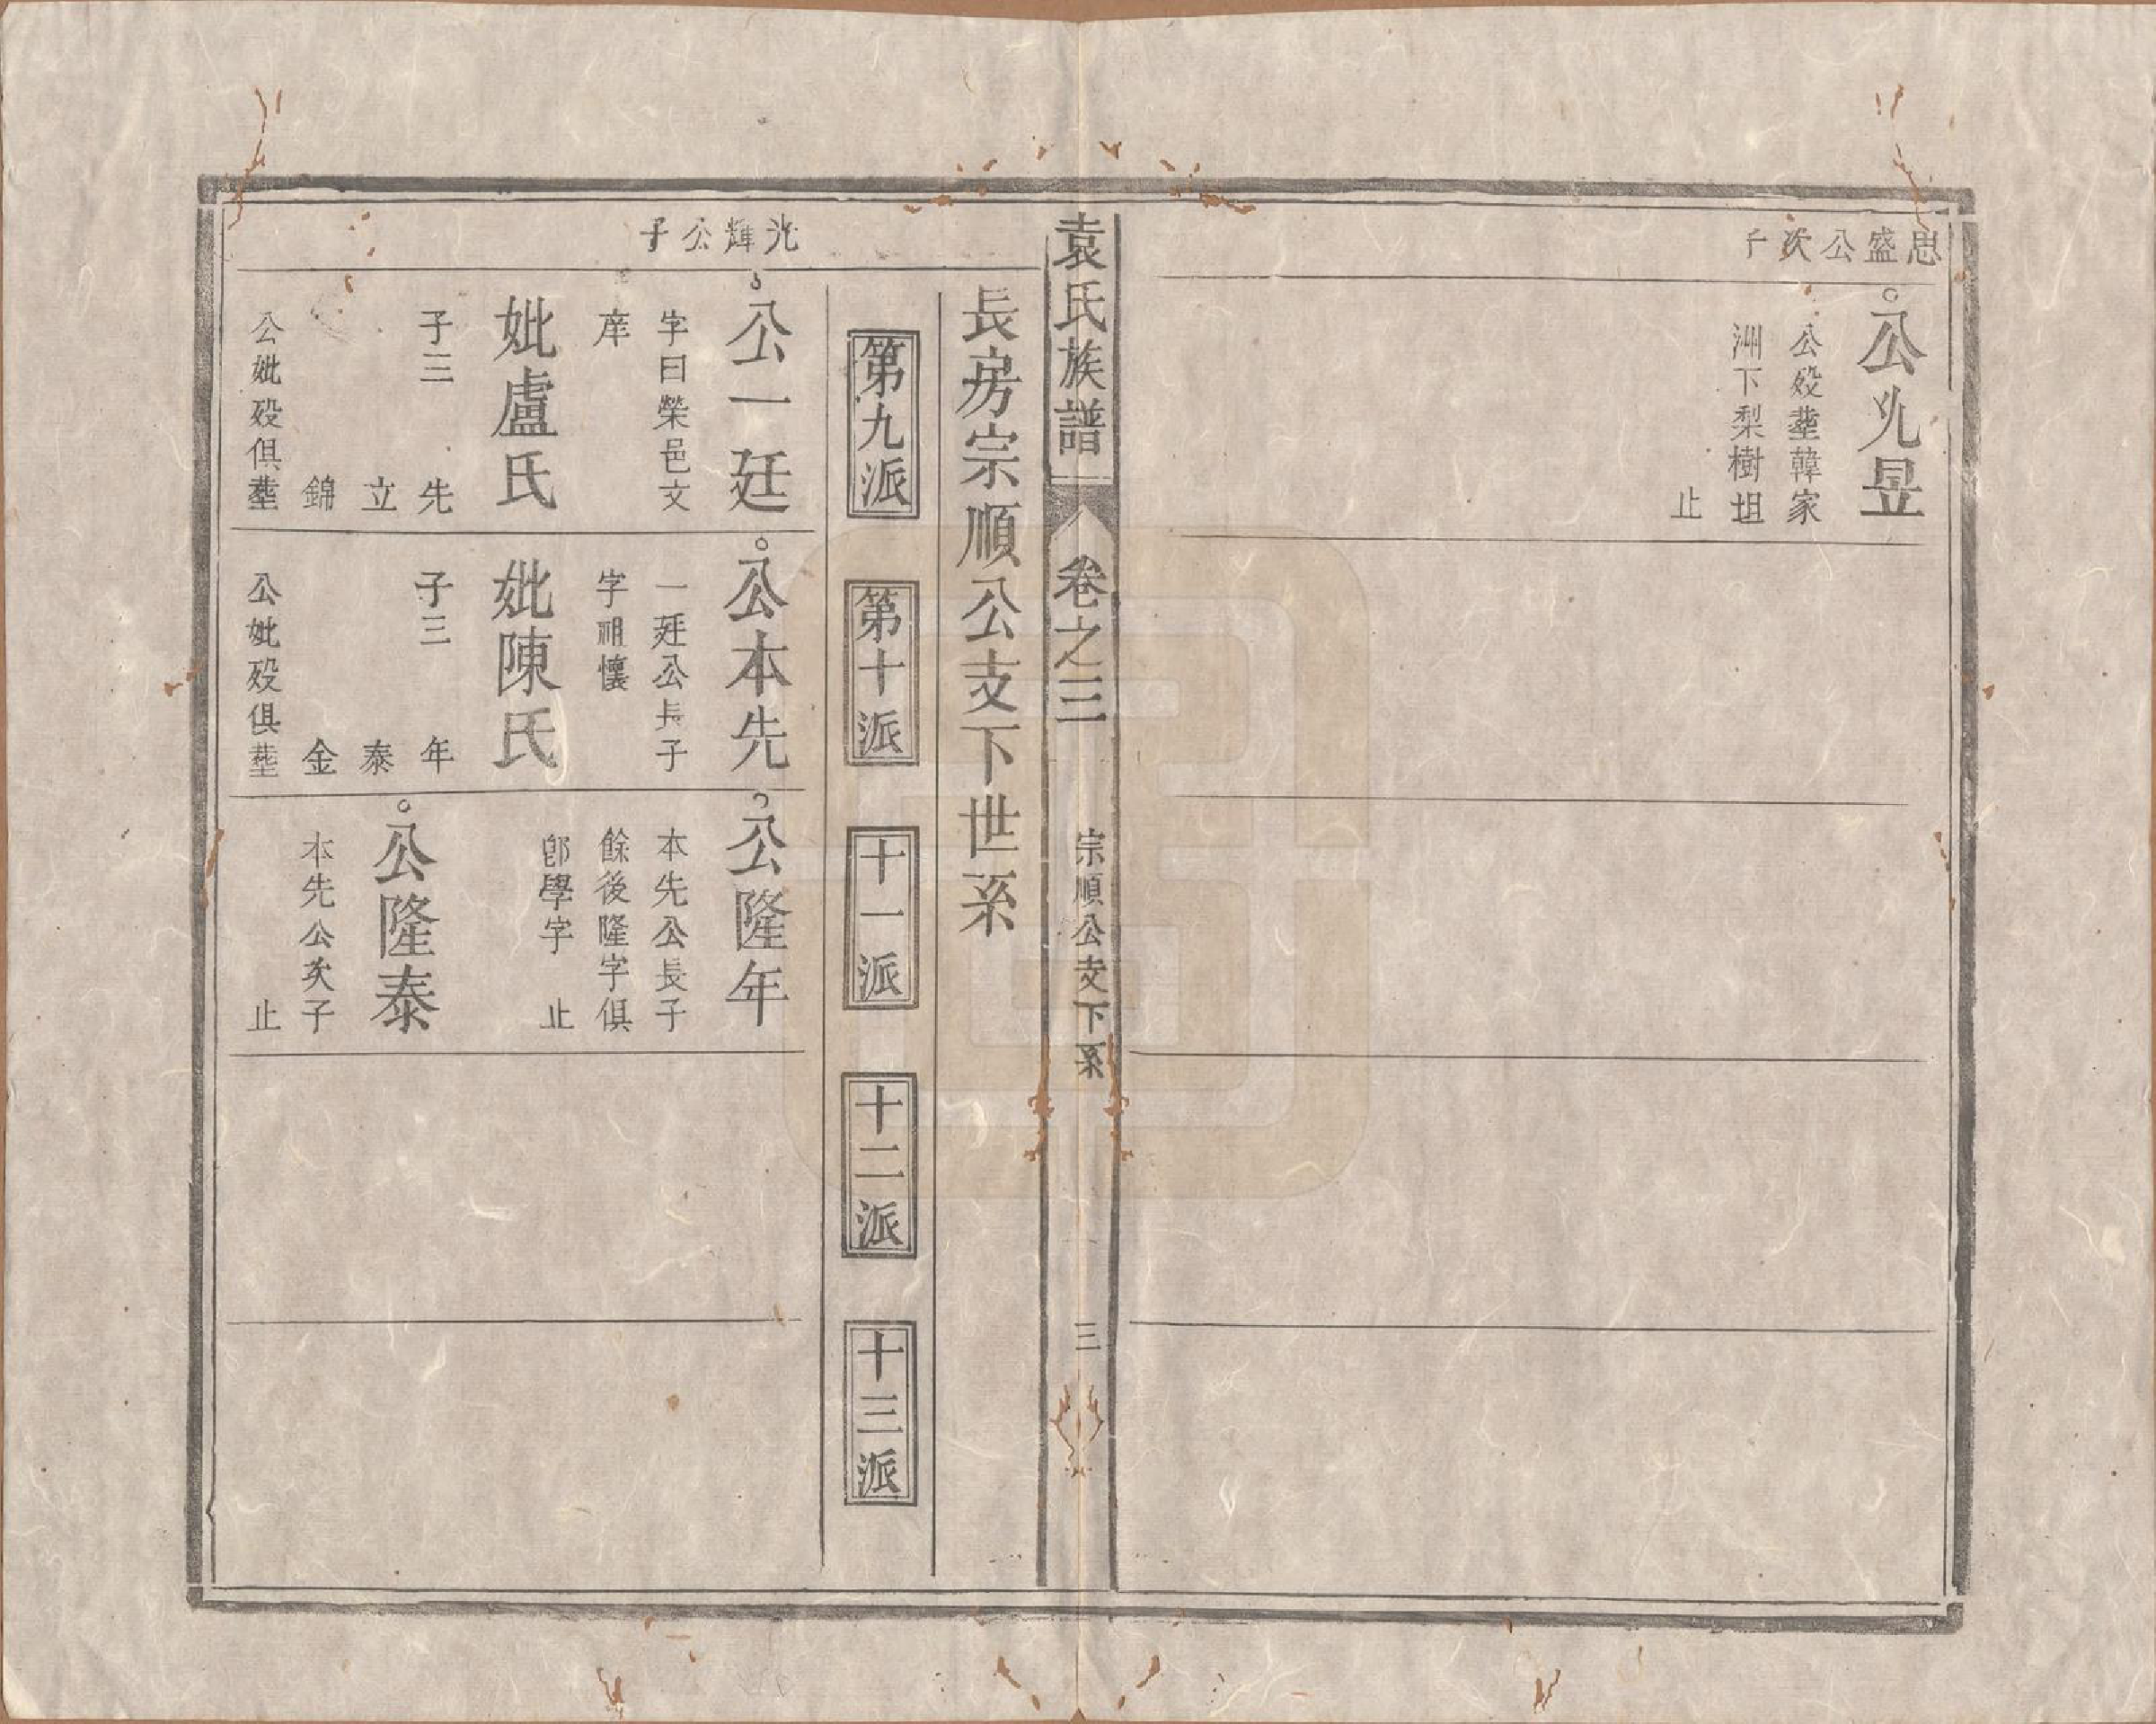 思盛公次子
公光昱
公歿塟韓家
洲下梨樹坦
止
袁氏族譜
卷之三
宗順公支下系
三
長房宗順公支下世系
第九派
第十派
十一派
十二派
十三派
光輝公子
公一廷
字曰榮邑文
庠
妣盧氏
子三
先
立
錦
公妣歿俱塟
公本先
一廷公長子
字祖懷
妣陳氏
子三
年
泰
金
公妣歿俱塟
公隆年
本先公長子
餘後隆字俱
卽學字
止
公隆泰
本先公次子
止